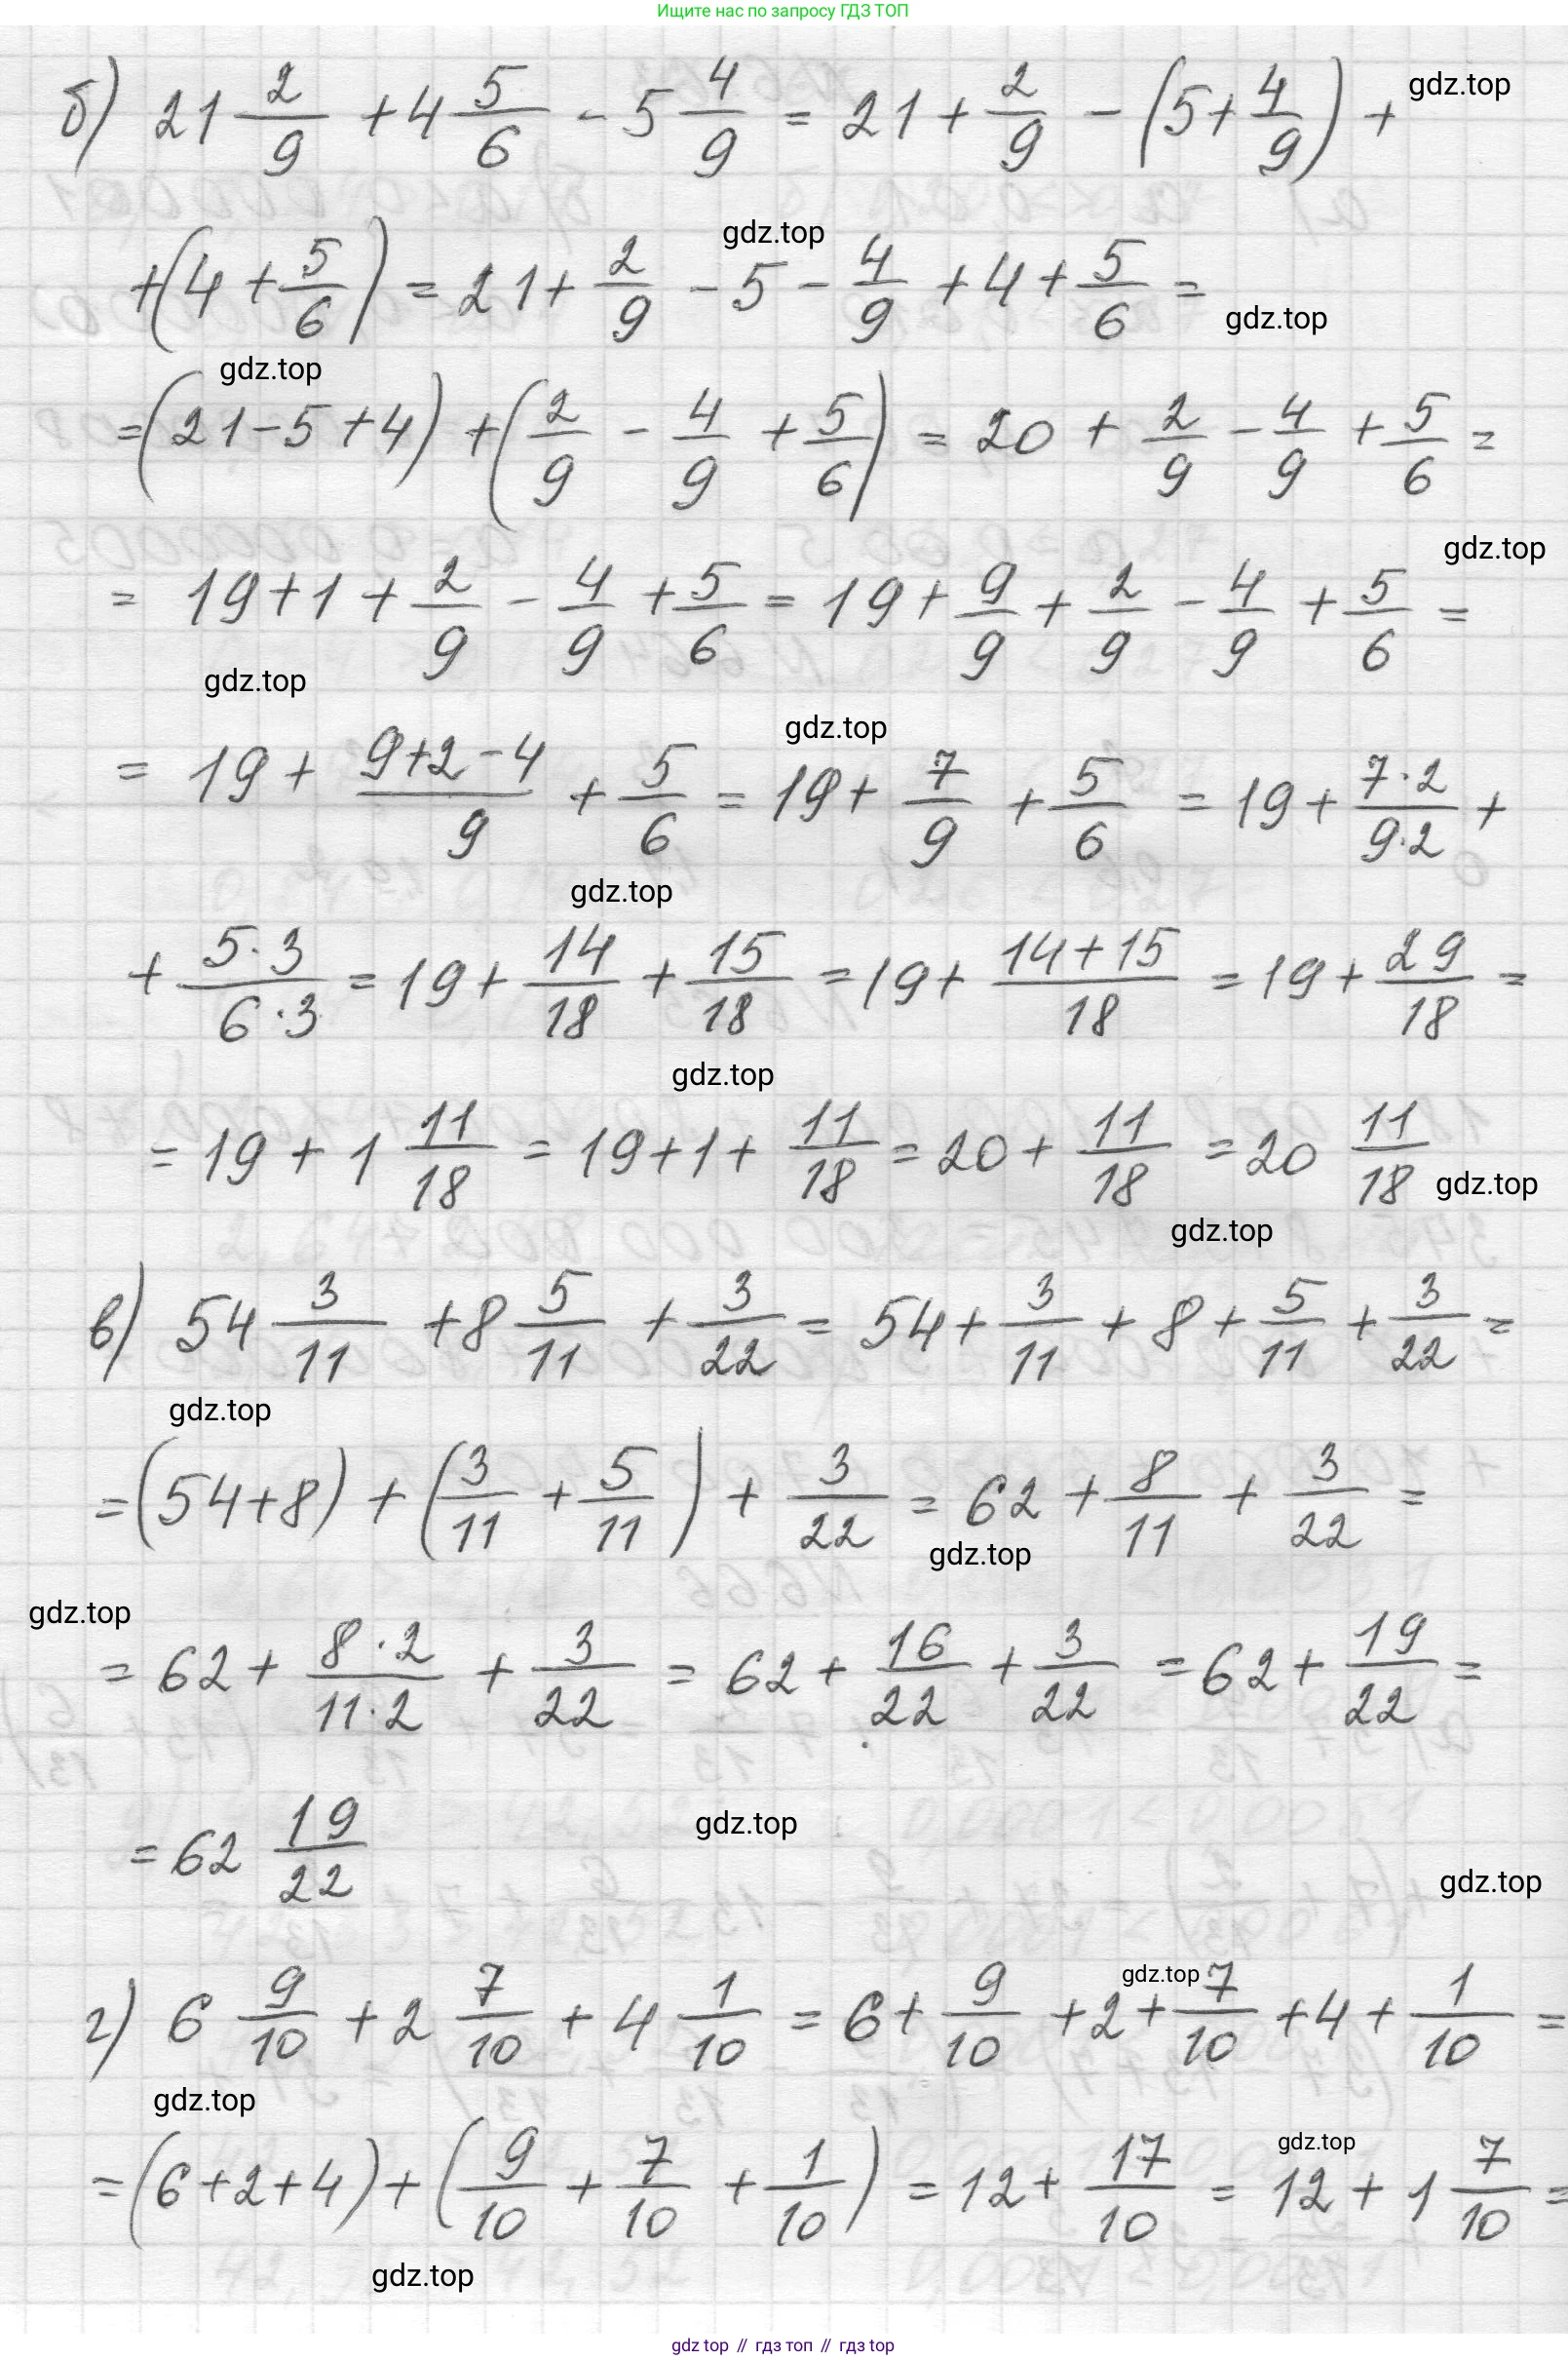 Ищите нас по запросу ГДЗ ТОП
б) 21 2/9 + 4 5/6 - 5 4/9 = 21 + 2/9 - (5 + 4/9) +
gdz.top
+ (4 + 5/6) = 21 + 2/9 - 5 - 4/9 + 4 + 5/6 =
gdz.top
gdz.top
gdz.top
= (21 - 5 + 4) + (2/9 - 4/9 + 5/6) = 20 + 2/9 - 4/9 + 5/6 =
gdz.top
= 19 + 1 + 2/9 - 4/9 + 5/6 = 19 + 9/9 + 2/9 - 4/9 + 5/6 =
gdz.top
gdz.top
= 19 + (9+2-4)/9 + 5/6 = 19 + 7/9 + 5/6 = 19 + (7·2)/(9·2) +
gdz.top
+ (5·3)/(6·3) = 19 + 14/18 + 15/18 = 19 + (14+15)/18 = 19 + 29/18 =
gdz.top
= 19 + 1 11/18 = 19 + 1 + 11/18 = 20 + 11/18 = 20 11/18
gdz.top
gdz.top
в) 54 3/11 + 8 5/11 + 3/22 = 54 + 3/11 + 8 + 5/11 + 3/22 =
gdz.top
= (54 + 8) + (3/11 + 5/11) + 3/22 = 62 + 8/11 + 3/22 =
gdz.top
gdz.top
= 62 + (8·2)/(11·2) + 3/22 = 62 + 16/22 + 3/22 = 62 + 19/22 =
= 62 19/22
gdz.top
gdz.top
г) 6 9/10 + 2 7/10 + 4 1/10 = 6 + 9/10 + 2 + 7/10 + 4 + 1/10 =
gdz.top
gdz.top
= (6 + 2 + 4) + (9/10 + 7/10 + 1/10) = 12 + 17/10 = 12 + 1 7/10 =
gdz.top
gdz.top
gdz top // гдз топ // гдз top